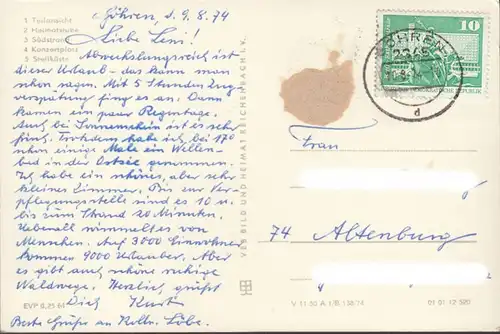 Göhren, d. 9.8.74
1 Teilansicht
2 Heimatstube
3 Südstrand
4 Konzertplatz
5 Steilküste
Liebe Leni!
Abwechslungsreich ist
dieser Urlaub - das kann man
schon sagen. Mit 5 Stunden Zug-
verspätung fing es an. Dann
kamen ein paar Regentage.
Auch bei Sonnenschein ist es sehr
frisch. Trotzdem habe ich, bei 17°
schon einige Male ein Wellen-
bad in der Ostsee genommen.
Ich habe ein schönes, aber sehr
kleines Zimmer. Bis zur Ver-
pflegungsstelle sind es 10 u.
bis zum Strand 20 Minuten.
Überall wimmelt es von
Menschen. Auf 3000 Einwohner
kommen 9000 Urlauber. Aber
es gibt auch schöne ruhige
Waldwege. Herzlich grüßt
Dich Kurt
EVP 0,25
Beste Grüße an Kolln. Löbe.
VEB BILD UND HEIMAT REICHENBACH I. V.
10
GÖHREN
2345
DEUTSCHE DEMOKRATISCHE REPUBLIK
d
Frau
74 Altenburg
V 11 50 A 1/B 138/74
01 01 12 520